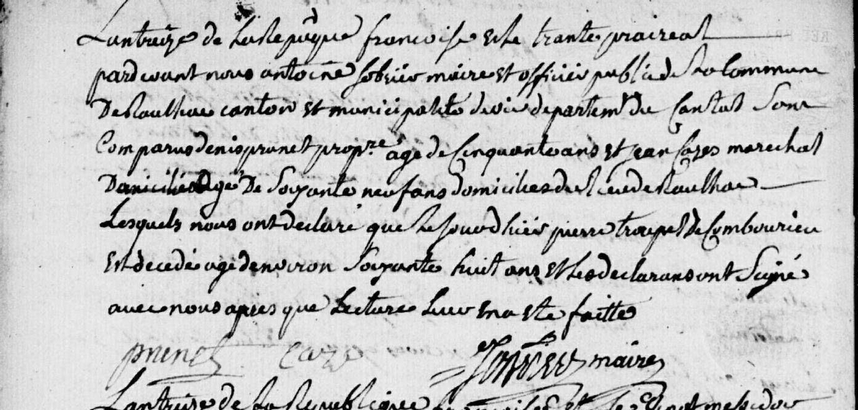 Lantreize de la Repuque francoise et le trante praireal
pardevant nous antoine sobrier maire et officier public de la Commune
De Raulhac canton et municipalite de vic departemt du Cantal Sont
Comparus denis prunet propre age de Cinquante ans et jean Cazes marechal
Domicilié agé De Soixante neuf ans domicilies de Rieu de Raulhac
Lesquels nous ont declaré que le jour dhier pierre troupel de Combourieu
Est decedé age denviron Soixante huit ans et les declarans ont Signé
avec nous apres que Lecture Leur en a ete faitte
prunet cazes maire
Lantreize de la Republique francoise et le messidor